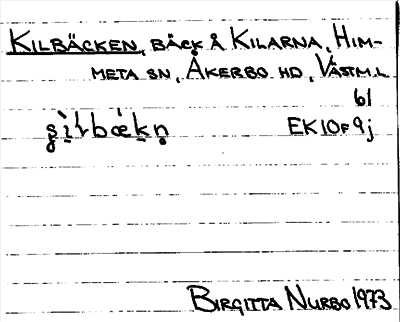 KILBÄCKEN, BÄCK Å KILARNA, HIM-
META SN, ÅKERBO HD, VÄSTM.L
61
EK10F9j
BIRGITTA NURBO 1973